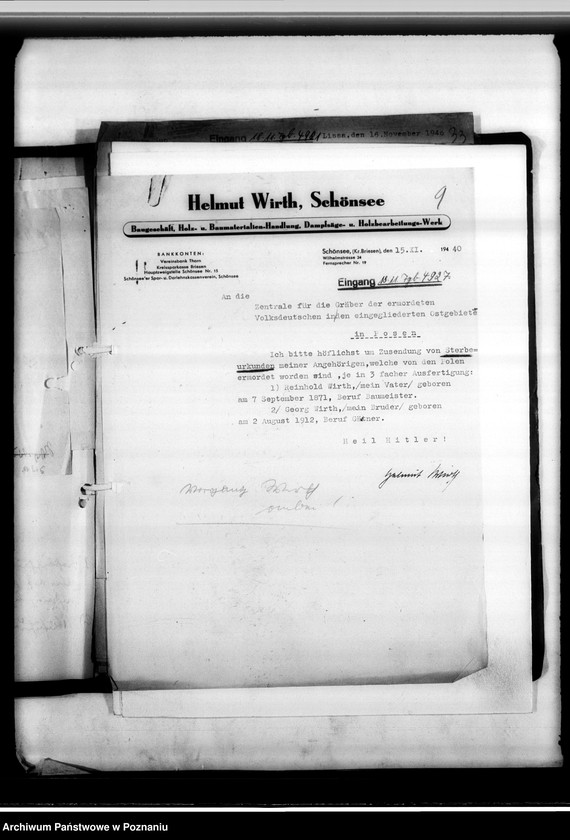 Eingang
Lissa, den 16. November 1940 33
9
Helmut Wirth, Schönsee
Baugeschäft, Holz- u. Baumaterialien-Handlung, Dampfsäge- u. Holzbearbeitungs-Werk
BANKKONTEN:
Vereinsbank Thorn
Kreissparkasse Briesen
Hauptzweigstelle Schönsee Nr. 15
Schönsee'er Spar- u. Darlehnskassenverein, Schönsee
Schönsee, (Kr. Briesen), den 15.XI. 194 40
Wilhelmstrasse 34
Fernsprecher Nr. 19
Eingang 18.11. Tgb. 4927
An die
Zentrale für die Gräber der ermordeten
Volksdeutschen inden eingegliederten Ostgebiete
in Posen
Ich bitte höflichst um Zusendung von Sterbe-
urkunden meiner Angehörigen,welche von den Polen
ermordet worden sind ,je in 3 facher Ausfertigung:
1) Reinhold Wirth,/mein Vater/ geboren
am 7 September 1871, Beruf Baumeister.
2/ Georg Wirth,/mein Bruder/ geboren
am 2 August 1912, Beruf
Heil Hitler!
Helmut Wirth
Archiwum Państwowe w Poznaniu